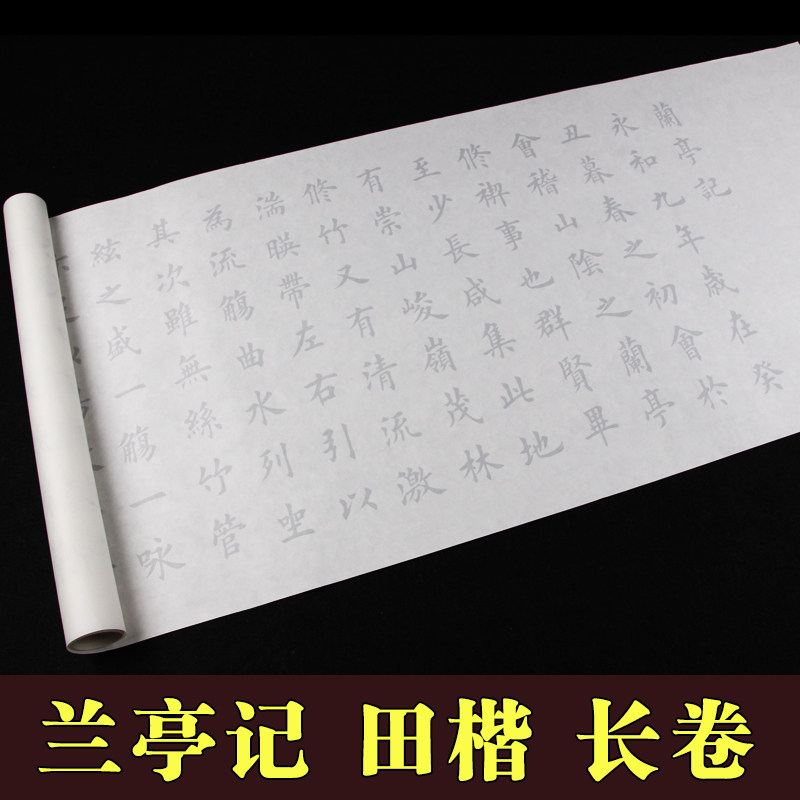 蘭亭記
永和九年歲在癸
丑暮春之初會於
會稽山陰之蘭亭
修禊事也群賢畢
至少長咸集此地
有崇山峻嶺茂林
修竹又有清流激
湍暎帶左右引以
為流觴曲水列坐
其次雖無絲竹管
絃之盛一觴一咏
兰亭记 田楷 长卷